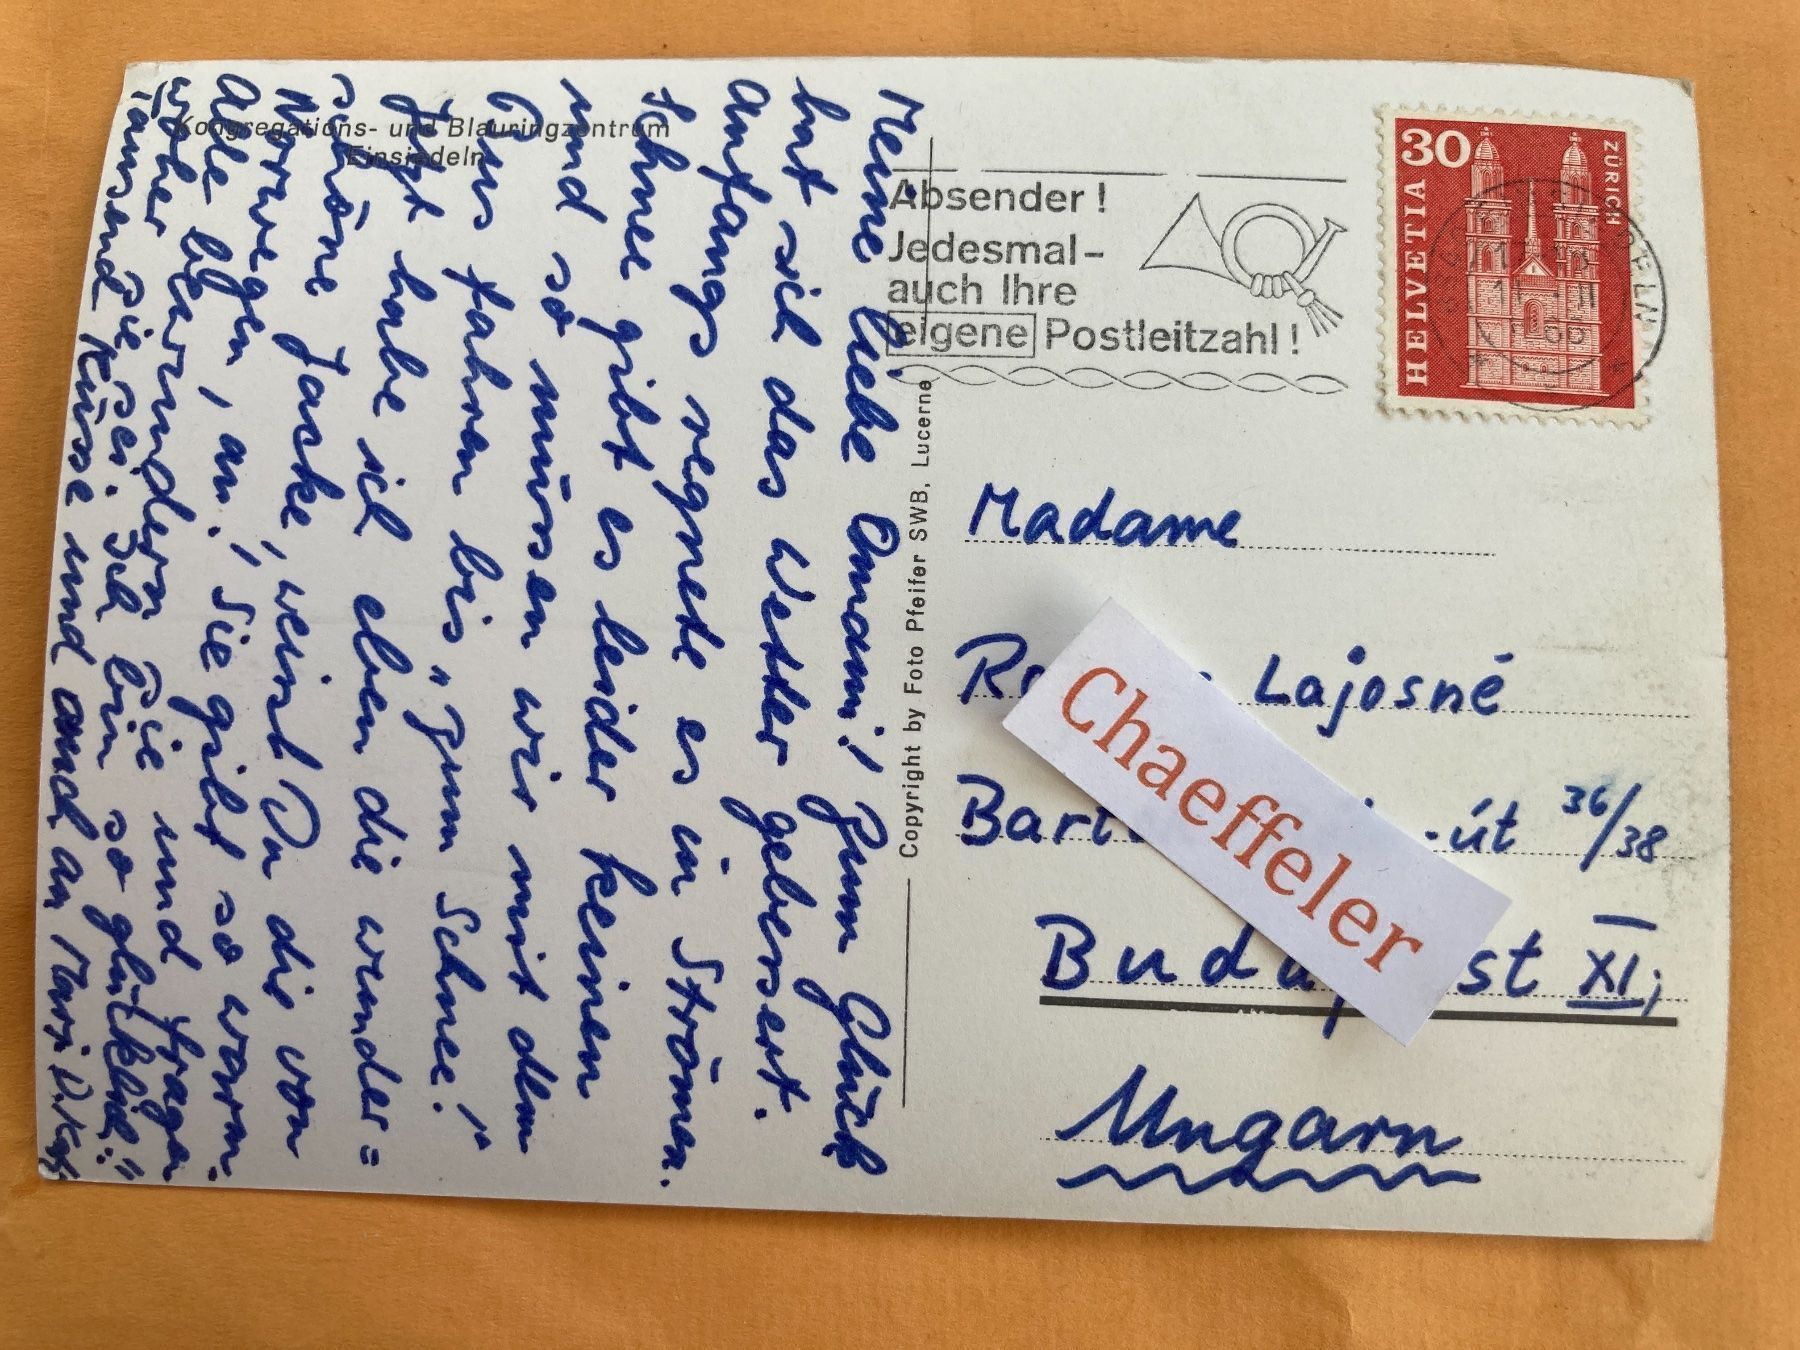 Kongregations- und Blauringzentrum
Einsiedeln
Meine liebe Omami! Zum Glück
hat sich das Wetter gebessert.
Anfangs regnete es in Strömen.
Schnee gibt es leider keinen
und so müssen wir mit dem
Bus fahren bis "zum Schnee!"
Jetzt habe ich eben die wunder=
schöne Jacke, weist Du die von
Norwegen, an! Sie gibt so warm.
Alle bewundern sie und fragen
woher sie sei. Ich bin so glücklich!!
Tausend Küsse und auch an
Copyright by Foto Pfeifer SWB, Lucerne
Absender!
Jedesmal-
auch Ihre
eigene Postleitzahl!
30
HELVETIA
ZÜRICH
Madame
Lajosné
Bart -út 36/38
Budapest XI,
Ungarn
Chaeffeler